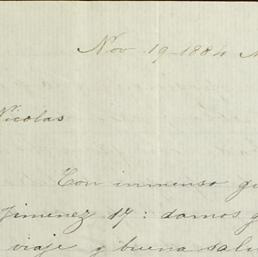 Nov 19-1884
Nicolas
Con inmenso
Jimenez 17: damos
viaje y buena